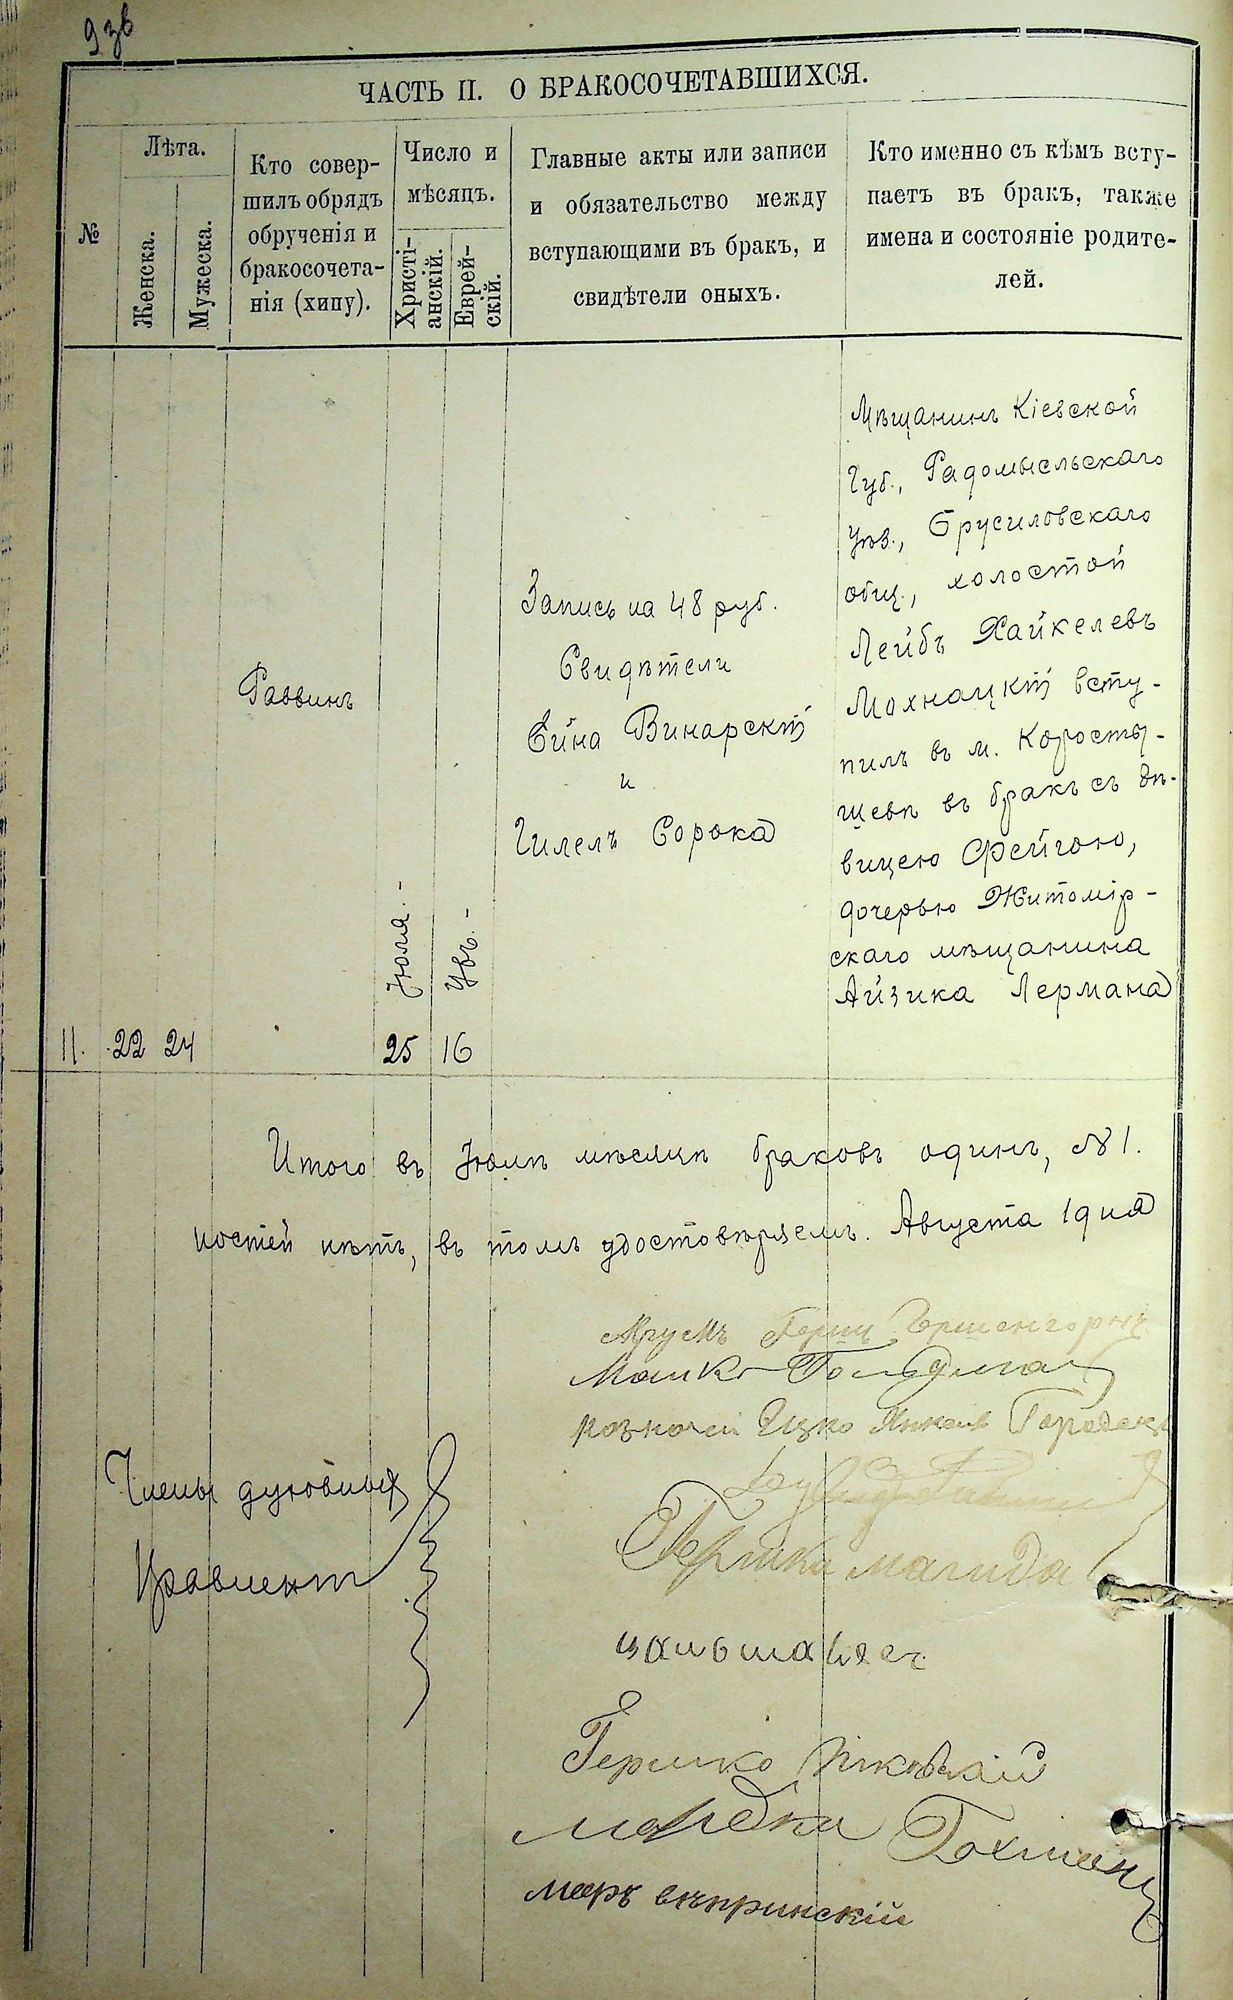 93б
ЧАСТЬ II. О БРАКОСОЧЕТАВШИХСЯ.
№
Лѣта.
Женска.
Мужеска.
Кто совер-
шилъ обрядъ
обрученія и
бракосочета-
нія (хипу).
Число и
мѣсяцъ.
Христі-
анскій.
Еврей-
скій.
Главные акты или записи
и обязательство между
вступающими въ бракъ, и
свидѣтели оныхъ.
Кто именно съ кѣмъ всту-
паетъ въ бракъ, также
имена и состояніе родите-
лей.
11.
22
24
Раввинъ
Іюля.-
25
16
Запись на 48 руб.
Свидѣтели
Винарскій
и
Гилелъ Сорока
Мѣщанинъ Кіевской
Губ., Радомысльскаго
уѣз., Брусиловскаго
общ., холостой
Лейбъ Хайкелевъ
Мохнацкій всту-
пилъ въ м. Коросты-
шевѣ въ бракъ съ дѣ-
вицею Фейгою,
дочерью Житомір-
скаго мѣщанина
Айзика Лермана
Итого въ Іюлѣ мѣсяцѣ браковъ одинъ, № 1.
ностей нѣтъ, въ томъ удостовѣряемъ. Августа 1 дня
Герш
Мошко Гольдман
Ицко Янкель Городецк
Члены духовныя
Правленія
Гершко Магида
Гершко
Мордко Гохман
Меръ